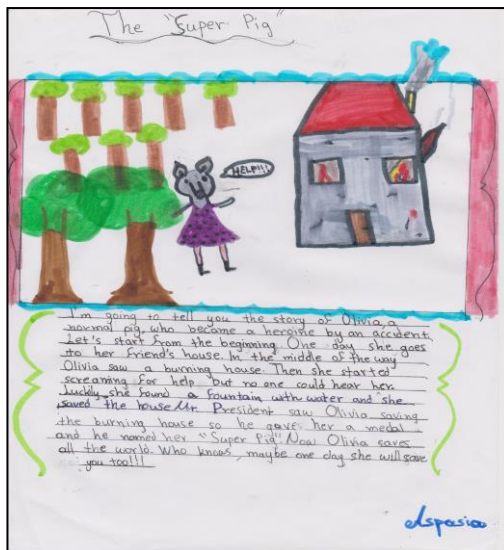 The "Super Pig"
HELP!!!
I'm going to tell you the story of Olivia, a
normal pig, who became a heroine by an accident.
Let's start from the beginning. One day she goes
to her friend's house. In the middle of the way
Olivia saw a burning house. Then she started
screaming for help but no one could hear her.
Luckily she found a fountain with water and she
saved the house. Mr. President saw Olivia saving
the burning house so he gave her a medal
and he named her "Super Pig". Now Olivia saves
all the world. Who knows, maybe one day she will save
you too!!!
Aspasia